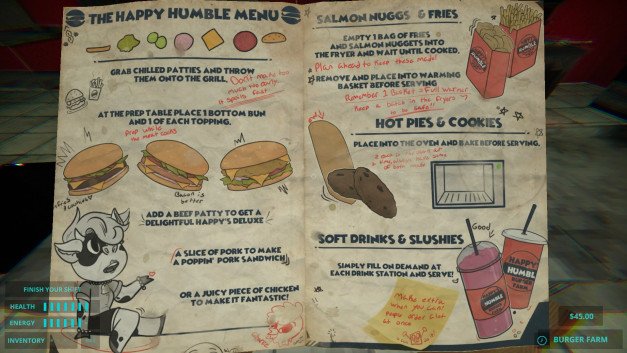 THE HAPPY HUMBLE MENU
GRAB CHILLED PATTIES AND THROW
THEM ONTO THE GRILL.
Don't make too
much too early.
it spoils fast
AT THE PREP TABLE PLACE 1 BOTTOM BUN
AND 1 OF EACH TOPPING.
Prep while
the meat cooks
Bacon is
better
ADD A BEEF PATTY TO GET A
DELIGHTFUL HAPPY'S DELUXE
A SLICE OF PORK TO MAKE
A POPPIN' PORK SANDWICH
OR A JUICY PIECE OF CHICKEN
TO MAKE IT FANTASTIC!
FINISH YOUR SHIFT
HEALTH
ENERGY
INVENTORY
SALMON NUGGS & FRIES
EMPTY 1 BAG OF FRIES
AND SALMON NUGGETS INTO
THE FRYER AND WAIT UNTIL COOKED.
Plan ahead to keep these made!
REMOVE AND PLACE INTO WARMING
BASKET BEFORE SERVING
Remember 1 Basket = Full warmer
Keep a batch in the fryers
to be safe!!
HOT PIES & COOKIES
PLACE INTO THE OVEN AND BAKE BEFORE SERVING.
SOFT DRINKS & SLUSHIES
Good
SIMPLY FILL ON DEMAND AT
EACH DRINK STATION AND SERVE!
Make extra
when you can!
people order a lot
at once
HUMBLE
HAPPY
HUMBL
BURGER
FARM
$45.00
BURGER FARM